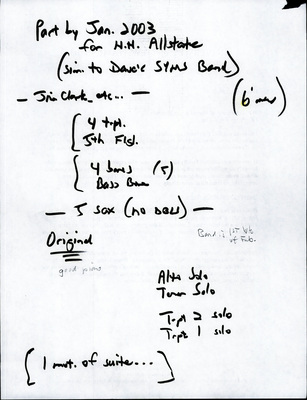 Part by Jan. 2003
for N.H. Allstate
(sim. to Dave's SYMS Band)
— Jim Clark, etc... —
(6 min)
4 trpt.
5th Flgl.
4 bones (5)
Bass Bone
— 5 sax (no dbls) —
Original
Band is 1st wk
of Feb.
good piano
Alto Solo
Tenor Solo
Trpt 2 solo
Trpt 1 solo
[1 mvt. of suite...]